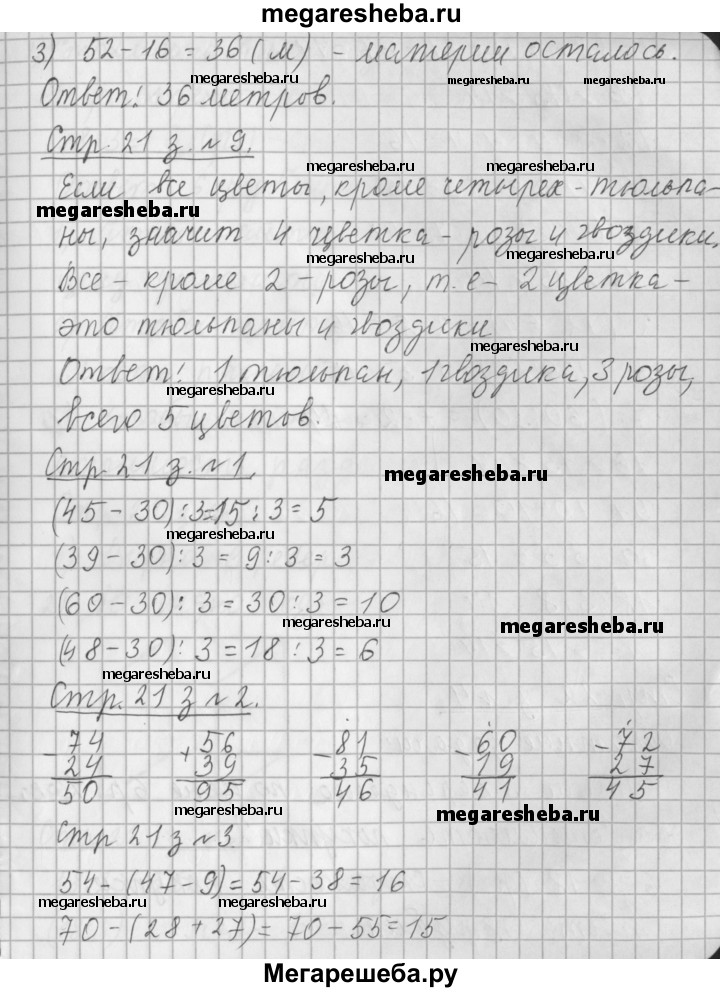 megaresheba.ru
3) 52 - 16 = 36 (м) - материи осталось.
megaresheba.ru megaresheba.ru
Ответ: 36 метров.
Стр. 21 з. № 9.
megaresheba.ru megaresheba.ru
Если все цветы, кроме четырех - тюльпа-
megaresheba.ru
ны, значит 4 цветка - розы и гвоздики.
megaresheba.ru megaresheba.ru
Все - кроме 2 - розы, т.е - 2 цветка -
это тюльпаны и гвоздики
megaresheba.ru
Ответ: 1 тюльпан, 1 гвоздика, 3 розы,
megaresheba.ru
всего 5 цветов.
Стр. 21 з. № 1.
megaresheba.ru
(45 - 30) : 3 = 15 : 3 = 5
megaresheba.ru
(39 - 30) : 3 = 9 : 3 = 3
(60 - 30) : 3 = 30 : 3 = 10
megaresheba.ru megaresheba.ru
(48 - 30) : 3 = 18 : 3 = 6
megaresheba.ru
Стр. 21 з № 2.
74 56 81 60 72
- 24 + 39 - 35 - 19 - 27
50 95 46 41 45
megaresheba.ru megaresheba.ru
Стр 21 з № 3
54 - (47 - 9) = 54 - 38 = 16
megaresheba.ru megaresheba.ru
70 - (28 + 27) = 70 - 55 = 15
Мегарешеба.ру